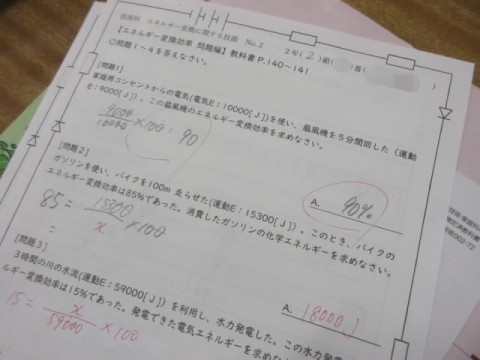 技術科 エネルギー変換に関する技術 No.2 2年(2)組( )番(
【エネルギー変換効率 問題編】教科書P.140~141
◎問題1~4を答えなさい。
[問題1]
家庭用コンセントからの電気(電気E:10000[J])を使い、扇風機を5分間回した(運動
E:9000[J])。この扇風機のエネルギー変換効率を求めなさい。
9000/10000 ×100 = 90
A. 90%
[問題2]
ガソリンを使い、バイクを100m走らせた(運動E:15300[J])。このとき、バイクの
エネルギー変換効率は85%であった。消費したガソリンの化学エネルギーを求めなさい。
85 = /x ×100
=
A. 18000J
[問題3]
3時間の川の水流(運動E:59000[J])を利用し、水力発電した。この水力発
ルギー変換効率は15%であった。発電できた電気エネルギーを求めな
15 = x/59000 ×100
002-72